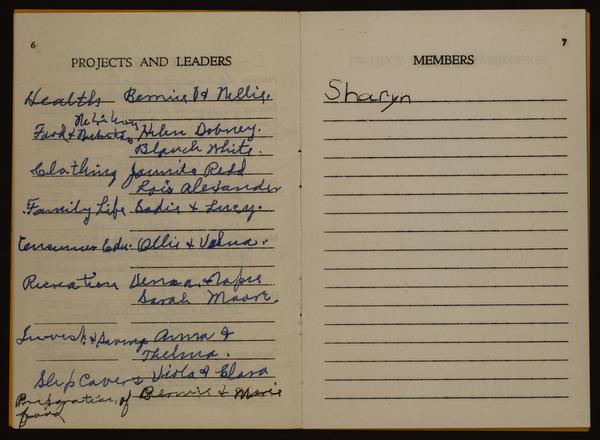 6
PROJECTS AND LEADERS
Health Bernice & Nellie.
Food & Helen Dobney.
Blanch White.
Clothing Juanita Redd
Lois Alexander
Family Life Sadie & Lucy.
Consumer Edu. Ollie & Velma.
Recreation
Sarah Moore.
Invest. & Saving Anna &
Thelma.
Slip Covers Viola & Clara
Preparation of Bernice & Marie
food
7
MEMBERS
Sharyn